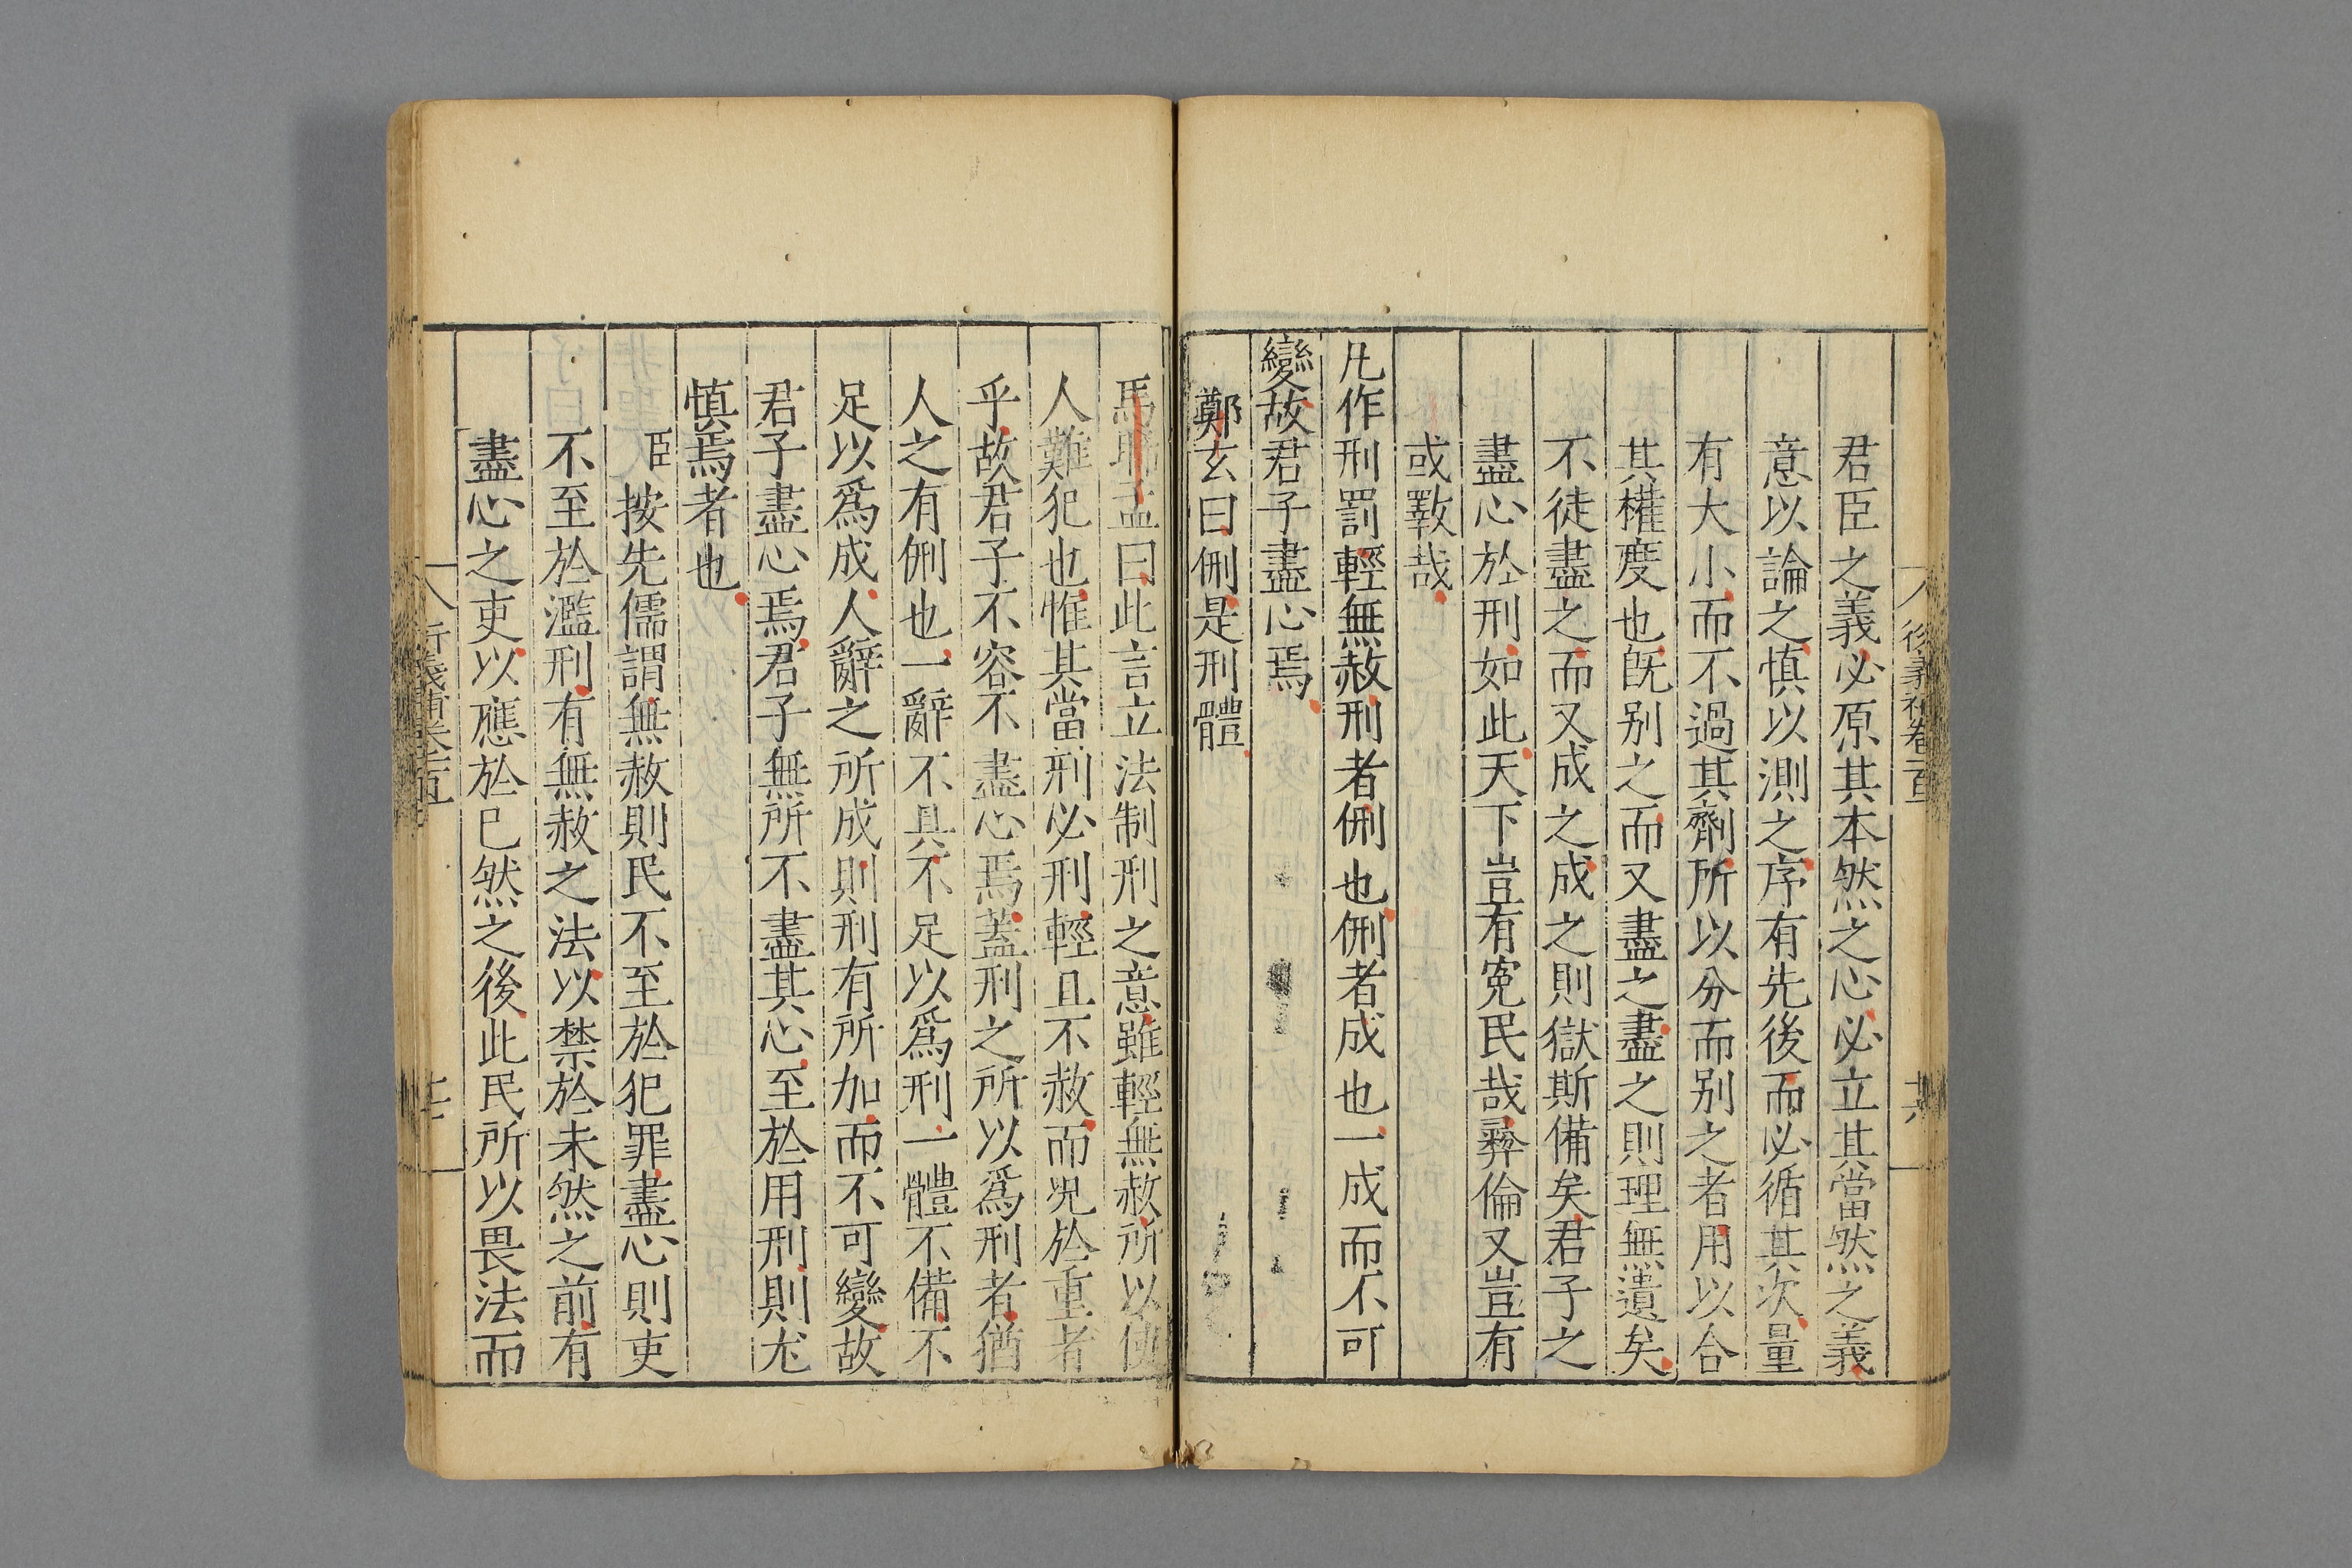 君臣之義必原其本然之心必立其當然之義
意以論之慎以測之序有先後而必循其次量
有大小而不過其劑所以分而别之者用以合
其權度也旣别之而又盡之盡之則理無遺矣
不徒盡之而又成之成之則獄斯備矣君子之
盡心於刑如此天下豈有寃民哉彞倫又豈有
或斁哉
凡作刑罰輕無赦刑者侀也侀者成也一成而不可
變故君子盡心焉
鄭玄曰侀是刑體
馬晞孟曰此言立法制刑之意雖輕無赦所以使
人難犯也惟其當刑必刑輕且不赦而况於重者
乎故君子不容不盡心焉蓋刑之所以爲刑者猶
人之有侀也一辭不具不足以爲刑一體不備不
足以爲成人辭之所成則刑有所加而不可變故
君子盡心焉君子無所不盡其心至於用刑則尤
慎焉者也
臣按先儒謂無赦則民不至於犯罪盡心則吏
不至於濫刑有無赦之法以禁於未然之前有
盡心之吏以應於已然之後此民所以畏法而